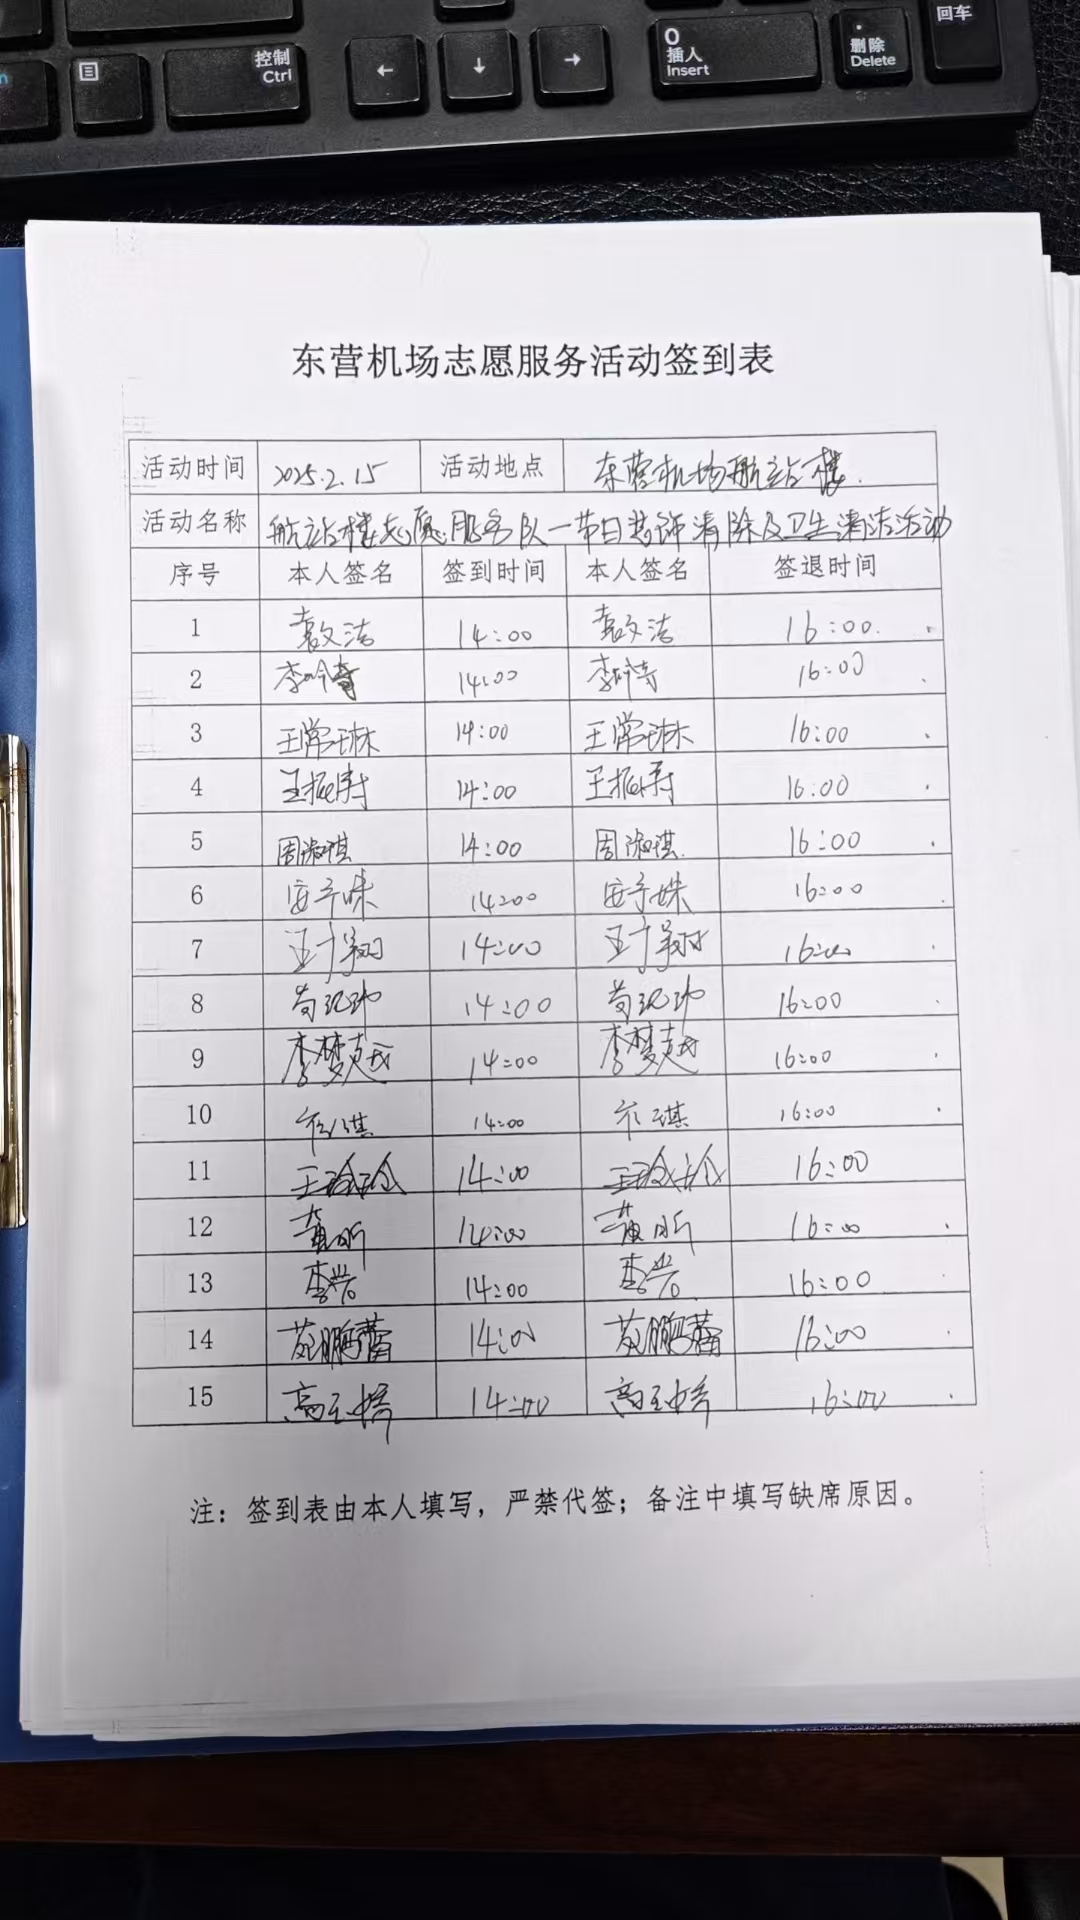 控制
Ctrl
←
↓
→
0
插人
Insert
.
删除
Delete
回车
东营机场志愿服务活动签到表
活动时间 2025.2.15 活动地点 东营机场航站楼.
活动名称 航站楼志愿服务队一节日装饰清除及卫生清洁活动
序号 本人签名 签到时间 本人签名 签退时间
1 袁文洁 14:00 袁文洁 16:00.
2 李吟奇 14:00 李吟奇 16:00
3 王常琳 14:00 王常琳 16:00
4 王振涛 14:00 王振涛 16:00
5 周淑琪 14:00 周淑琪 16:00
6 安子姝 14:00 安子姝 16:00
7 王翔 14:00 王翔 16:00
8 14:00 16:00
9 李梦 14:00 李梦 16:00
10 琪 14:00 琪 16:00
11 王玲玲 14:00 王玲玲 16:00
12 黄昕 14:00 黄昕 16:00
13 李岩 14:00 李岩 16:00
14 苑鹏蕾 14:00 苑鹏蕾 16:00
15 高玉婷 14:00 高玉婷 16:00
注：签到表由本人填写，严禁代签；备注中填写缺席原因。